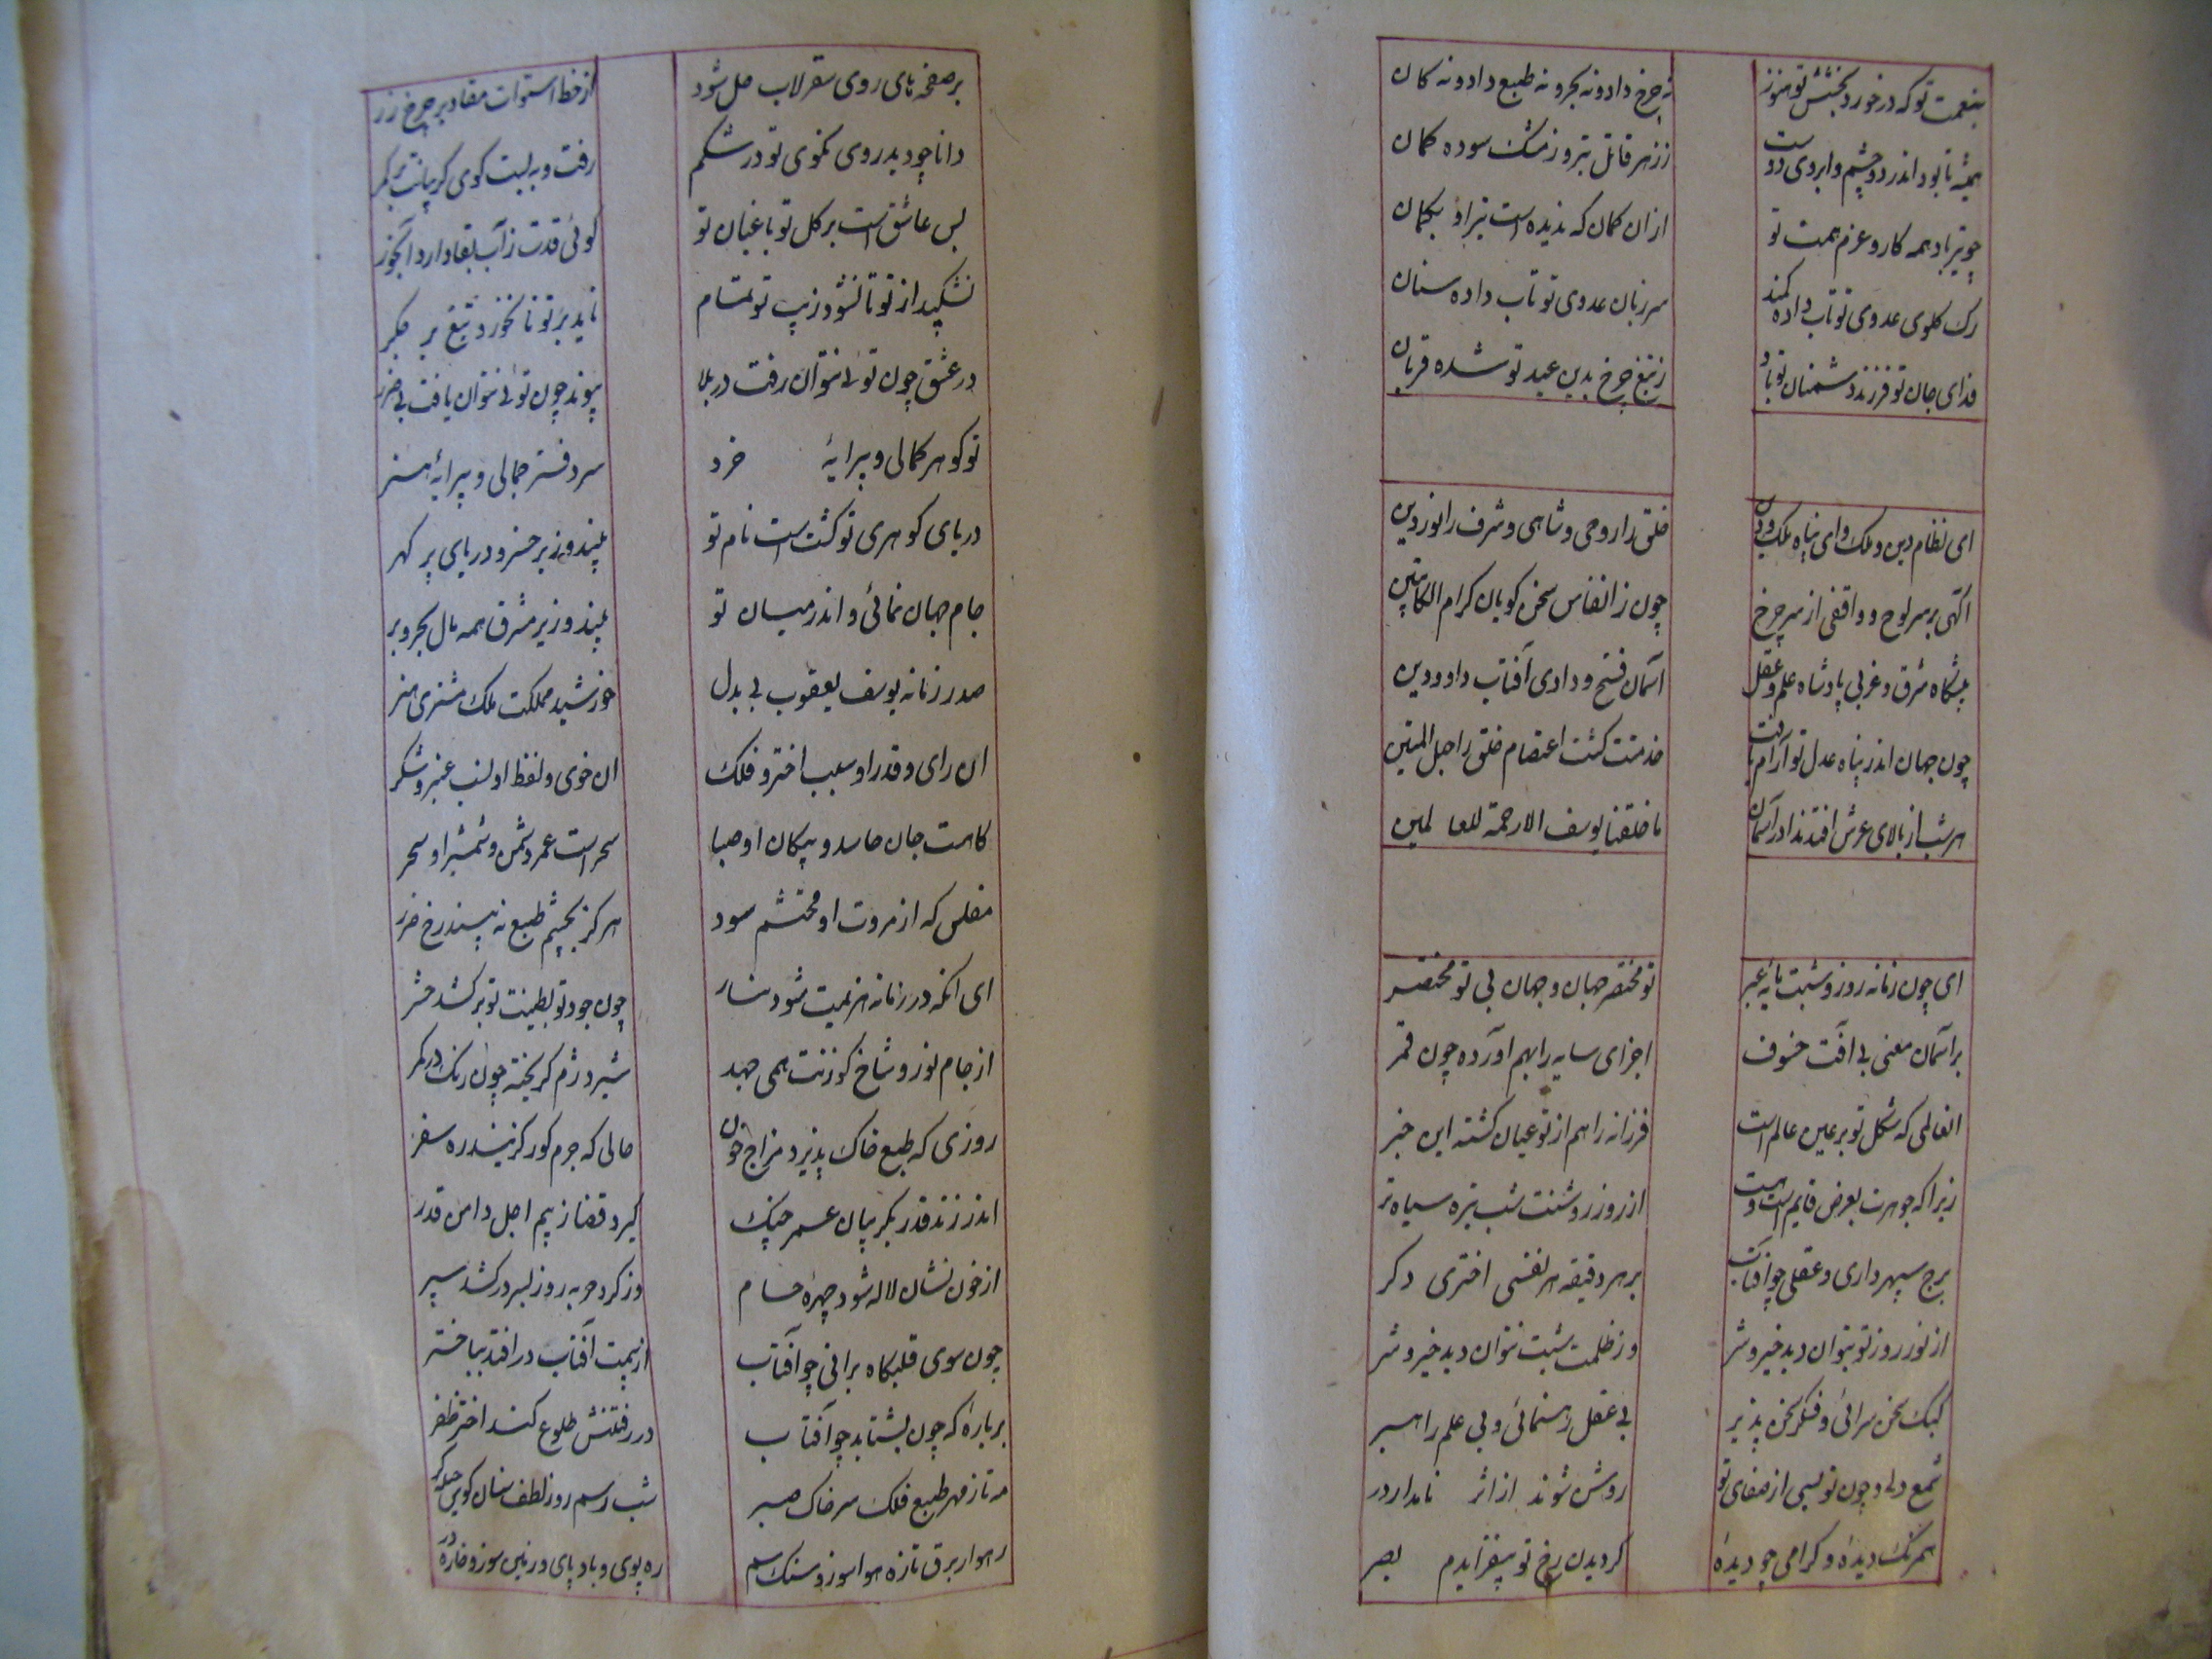 بنعمت تو که درخورد بخشش تو هنوز نه چرخ داد و نه بحر و نه طبع داد و نه کان
همیشه تا بود اندر دو چشم و ابروی دوست ز زهر قاتل تیر و ز مشک سوده کمان
چو تیر باد همه کار و عزم همت تو از ان کمان که ندیده است تیر او بکمان
رک کلوی عدوی تو تاب داده کمند سر زبان عدوی تو تاب داده سنان
فدای جان تو فرزند دشمنان تو باد ز تیغ چرخ بدین عید تو شده قربان
ای نظام دین و ملک و ای پناه ملک و دین خلق را روحی و شاهی و شرف را نور دین
آکهی بر سر لوح و واقفی از سر چرخ چون ز انفاس سخن کویان کرام الکاتبین
پیشکاه شرق و غربی پادشاه علم و عقل آسمان فتح و دادی آفتاب داد و دین
چون جهان اندر پناه عدل تو آرام یافت خدمتت کشت اعتصام خلق را حبل المتین
هر شب از بالای عرش افتد ندا در آسمان ما خلقنا یوسف الا رحمة للعالمین
ای چون زمانه روز و شبت مایه عبر تو مختصر جهان و جهان بی تو مختصر
بر آسمان معنی بی آفت خسوف اجزای سایه را بهم آورده چون قمر
که شکل تو بر عین عالم است فرزانه را هم از تو عیان کشته این خبر
زیرا که جوهرت بعرض قایم است و هست از روز روشنت شب تیره سیاه تر
برج سپهر داری و عقلی چو آفتاب بر هر دقیقه هر نفسی اختری دکر
از نور روز تو بتوان دید خیر و شر وز ظلمت شبت نتوان دید خیر و شر
سخن سرائی و فکر سخن پذیر بی عقل رهنمائی و بی علم راهبر
شمع چون تو بسی از صفای تو روشن شوند از اثر نامدار در
همرنک دیدهٔ و کرامی چو دیدهٔ کز دیدن رخ تو بیفزایدم بصر
بر صفحه های روی سقرلاب حل شود از خط استوات مقادیر چرخ زر
دانا چو دید روی نکوی تو در شکم رفت و ببست کوی کریبانت بر کمر
بس عاشق است بر کل تو باغبان تو کوئی قدت ز آب بقا دارد آبخور
نشکیبد از تو تا نشود زیب تو تمام ناید بر تو تا نخورد تیغ بر جکر
در عشق چون توئی نتوان رفت در بلا پیوند چون توئی نتوان یافت بی ضرر
تو کوهر کمالی و پیرایهٔ خرد سر دفتر جمالی و پیرایهٔ هنر
دریای کوهری تو کشت است نام تو بیند وزیر خسرو دریای پر کهر
جام جهان نمائی و اندر میان تو بیند وزیر مشرق همه مال بحر و بر
صدر زمانه یوسف یعقوب بی بدل خورشید مملکت ملک مشتری هنر
ان رای و قدر او سبب اختر و فلک ان خوی و لفظ او لسب عنبر و شکر
کاهست جان حاسد و پیکان او صبا سحر است عمر دشمن و شمشیر او سحر
مفلس که از مروت او محتشم شود هرکز بچشم طبع نه بیند رخ ضرر
ای انکه در زمانه هزیمت شود چون جود تو بطینت تو برکشد حشر
از جام نور و شاخ کوزنت همی جهد شیر دژم کریخته چون رنک در کمر
روزی که طبع خاک پذیرد مزاج خون حالی که جرم کور کزیند ره سفر
اندر زند قدر بکریبان عمر چنک کیرد قضا ز بیم اجل دامن قدر
از خون نشان لاله شود چهرهٔ حسام وز کرد حربه روز بسر درکشد سپر
چون سوی قلبکاه برانی چو آفتاب از هیبت آفتاب در افتد بباختر
بر بارهٔ که چون بشتابد چو آفتاب در رفتنش طلوع کند اختر ظفر
مه تاز مهر طبع فلک سر خاک صبر شب رسم روز لطف
رهوار برق تازه هوا سوز و سنک سم ره پوی و باد پای و زمین سوز و خاره در